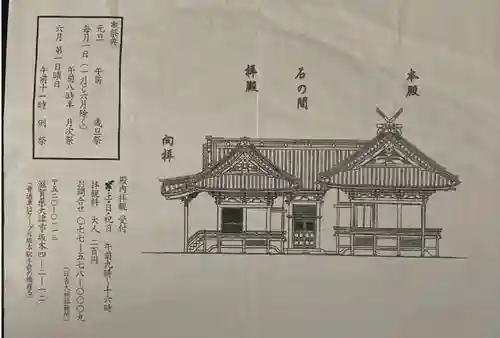 本殿
石の間
拝殿
向拝
※祭典
元旦 午前 歳旦祭
毎月一日(一月と六月除く)
午前八時半 月次祭
六月 第一日曜日
午前十一時 例祭
殿内拝観 受付
土・日・祝日 午前九時〜十六時
拝観料 大人 二百円
お問合せ 〇七七―五七八―〇〇〇九
(日吉大社社務所)
〒五二〇―〇一一三
滋賀県大津市坂本四―二―一二